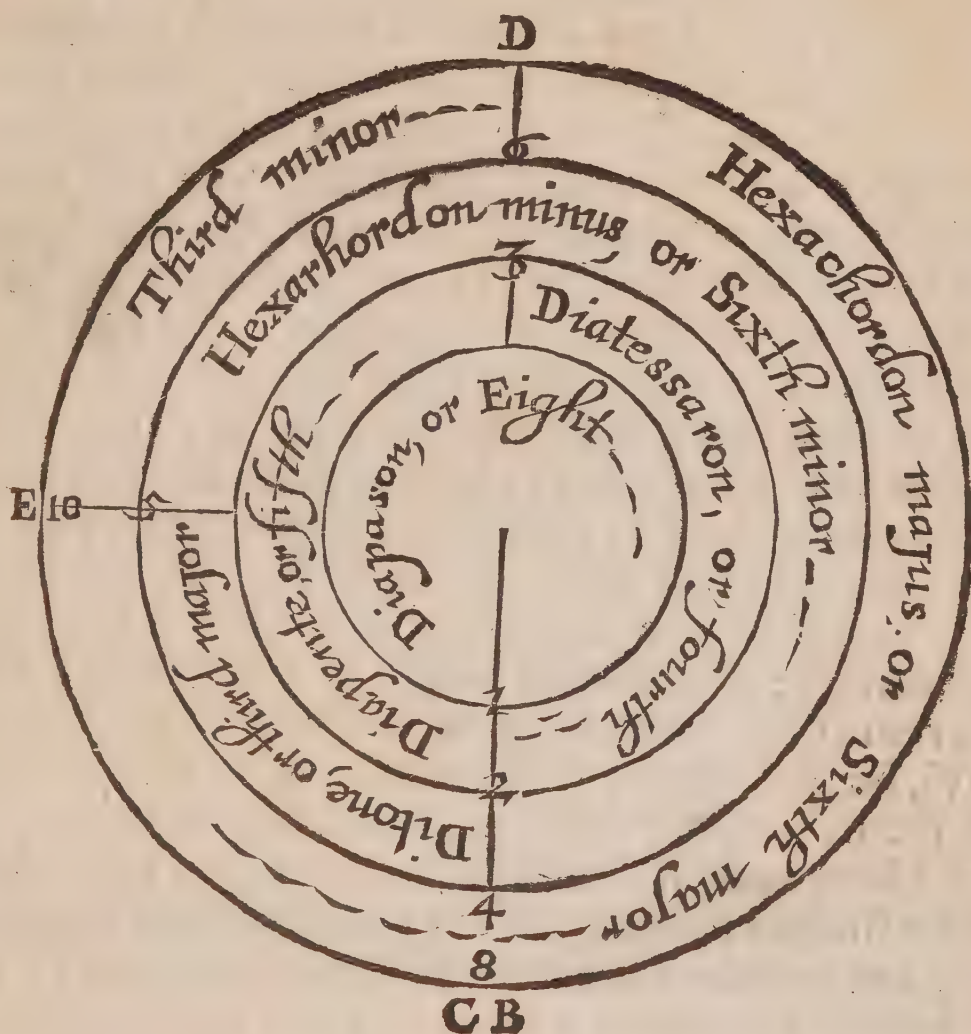 D
Third minor
6
Hexachordon majus. or Sixth major
Hexarhordon minus or Sixth minor
3
Diatessaron, or fourth
Diapason, or Eight
E 10
5
Diapente, or fifth
Ditone, or third major
1
2
4
8
C B